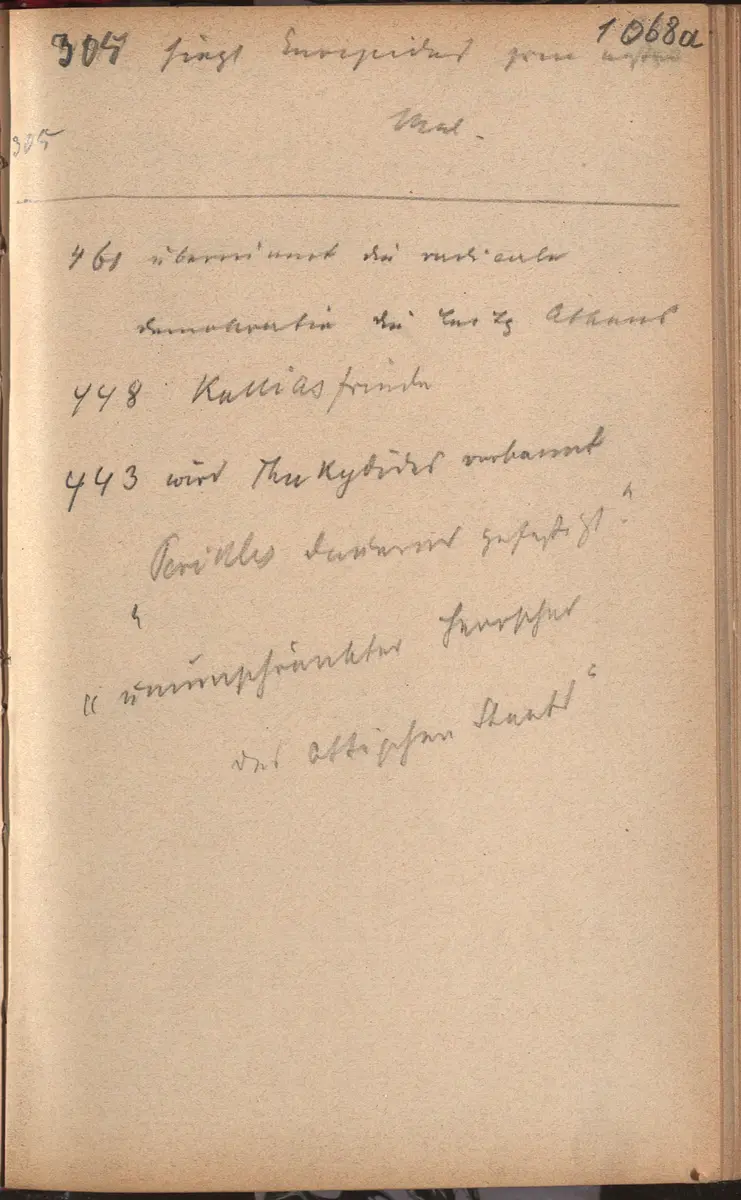 1068a
305 siegt Euripides zum ersten
Mal.
305
461 übernimmt die radicale
Demokratie die Leitg Athens
448 Kalliasfriede
443 wird Thukydides verbannt
Perikles dauernd gefestigt."
"
„unumschränkter Herrscher
des attischen Staats"